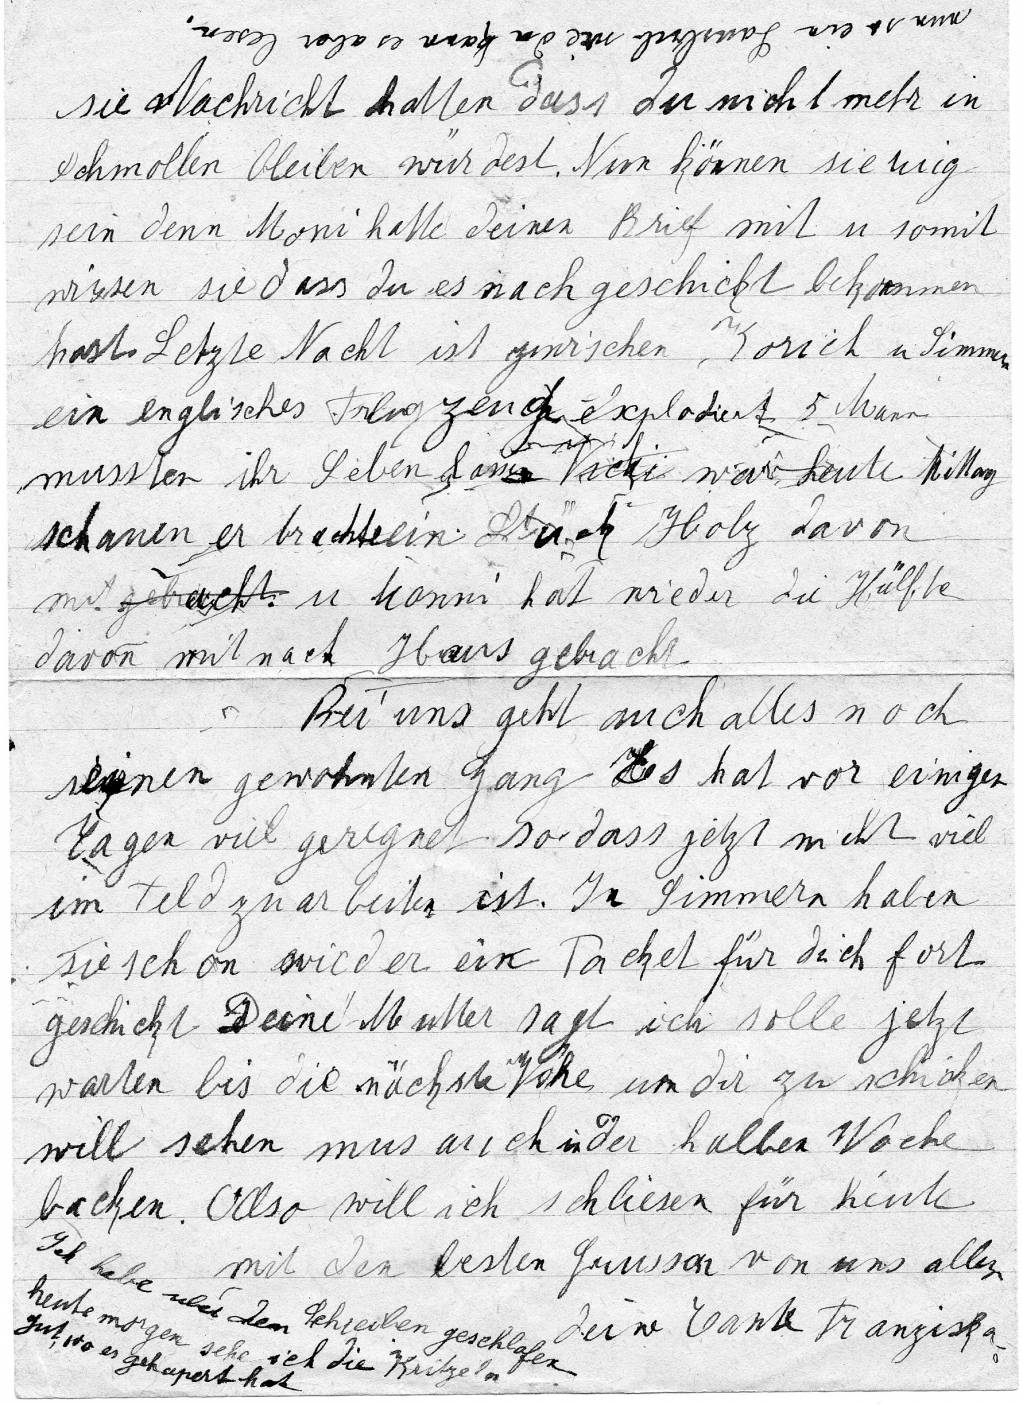 nur so ein Lausbub wie du kann es aber lesen.
sie Nachricht hatten dass du nicht mehr in
Schmollen bleiben würdest. Nun können sie ruig
sein denn Moni hatte deinen Brief mit u somit
wissen sie dass du es nach geschickt bekommen
hast. Letzte Nacht ist zwischen Korich u Simmern
ein englisches Flugzeug explodiert 5 Mann
mussten ihr Leben Vicki war heute Mittag
schauen er brachte ein Stück Holz davon
mit gebracht. u Nonni hat wieder die Hälfte
davon mit nach Haus gebracht
Bei uns geht auch alles noch
seinen gewohnten Gang Es hat vor einigen
Tagen viel geregnet so dass jetzt nicht viel
im Feld zu arbeiten ist. In Simmern haben
sie schon wieder ein Packet für dich fort
geschickt Deine Mutter sagt ich solle jetzt
warten bis die nächste Woche um dir zu schicken
will sehen mus auch in der halben Woche
backen. Also will ich schliesen für heute
mit den besten Grüssen von uns allen
deine Tante Franziska
Ich habe über dem Schreiben geschlafen
heute morgen sehe ich die Kritzeln
gut, wo es gehapert hat